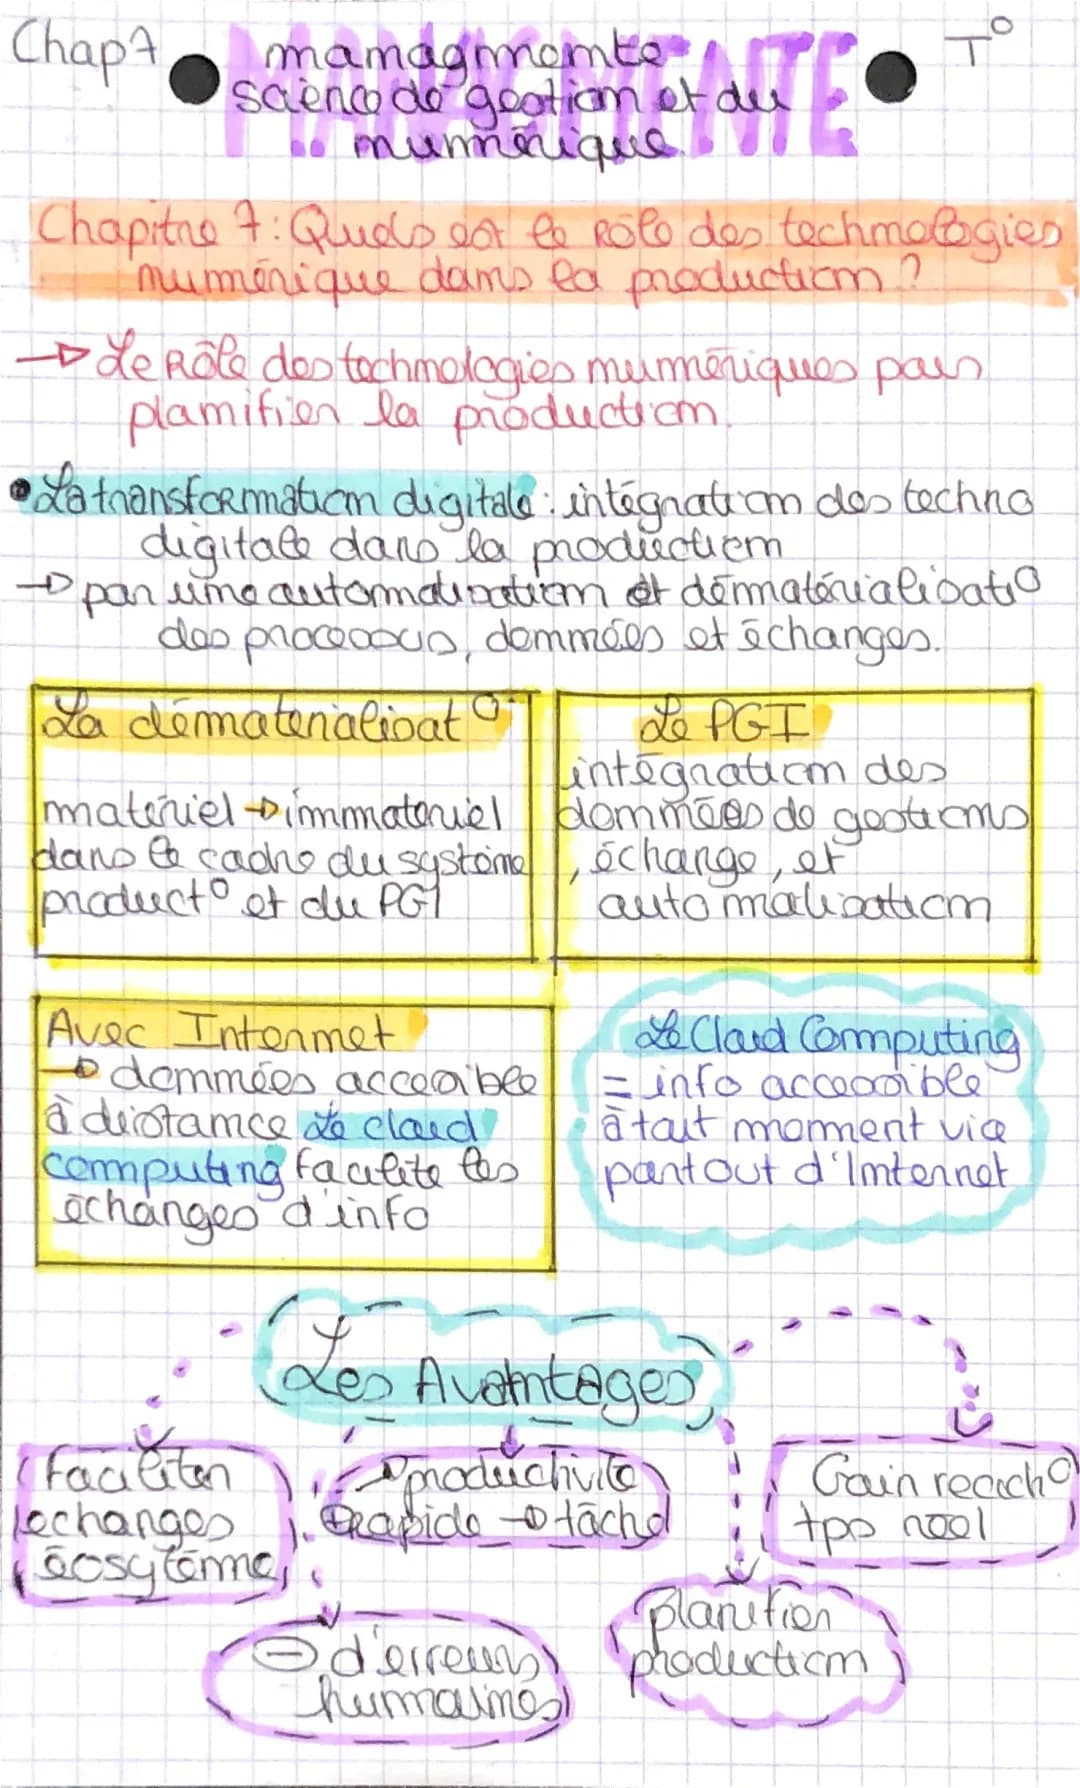 Chap 7
MANAGMENTE
T°
managmente
science de gestion et du
numérique
Chapitre 7 : Quels est le Rôle des technologies
numérique dans la production ?
→ Le Rôle des technologies numériques pour
planifier la production.
• La transformation digitale : intégration des techno
digitale dans la production
→ par une automatisation et dématérialisat°
des processus, données et échanges.
La dématérialisat°
matériel → immatériel
dans le cadre du système
product° et du PGI
Le PGI
intégration des
données de gestions
, échange, et
automatisation
Avec Internet
→ données accessible
à distance Le cloud
computing facilite les
échanges d'info
Le Cloud Computing
= info accessible
à tout moment via
partout d'Internet
Les Avantages
Faciliter
echanges
écosytème
productivité
rapide → tâche
Gain
tps réel
⊖ d'erreurs
humaines
planifier
production